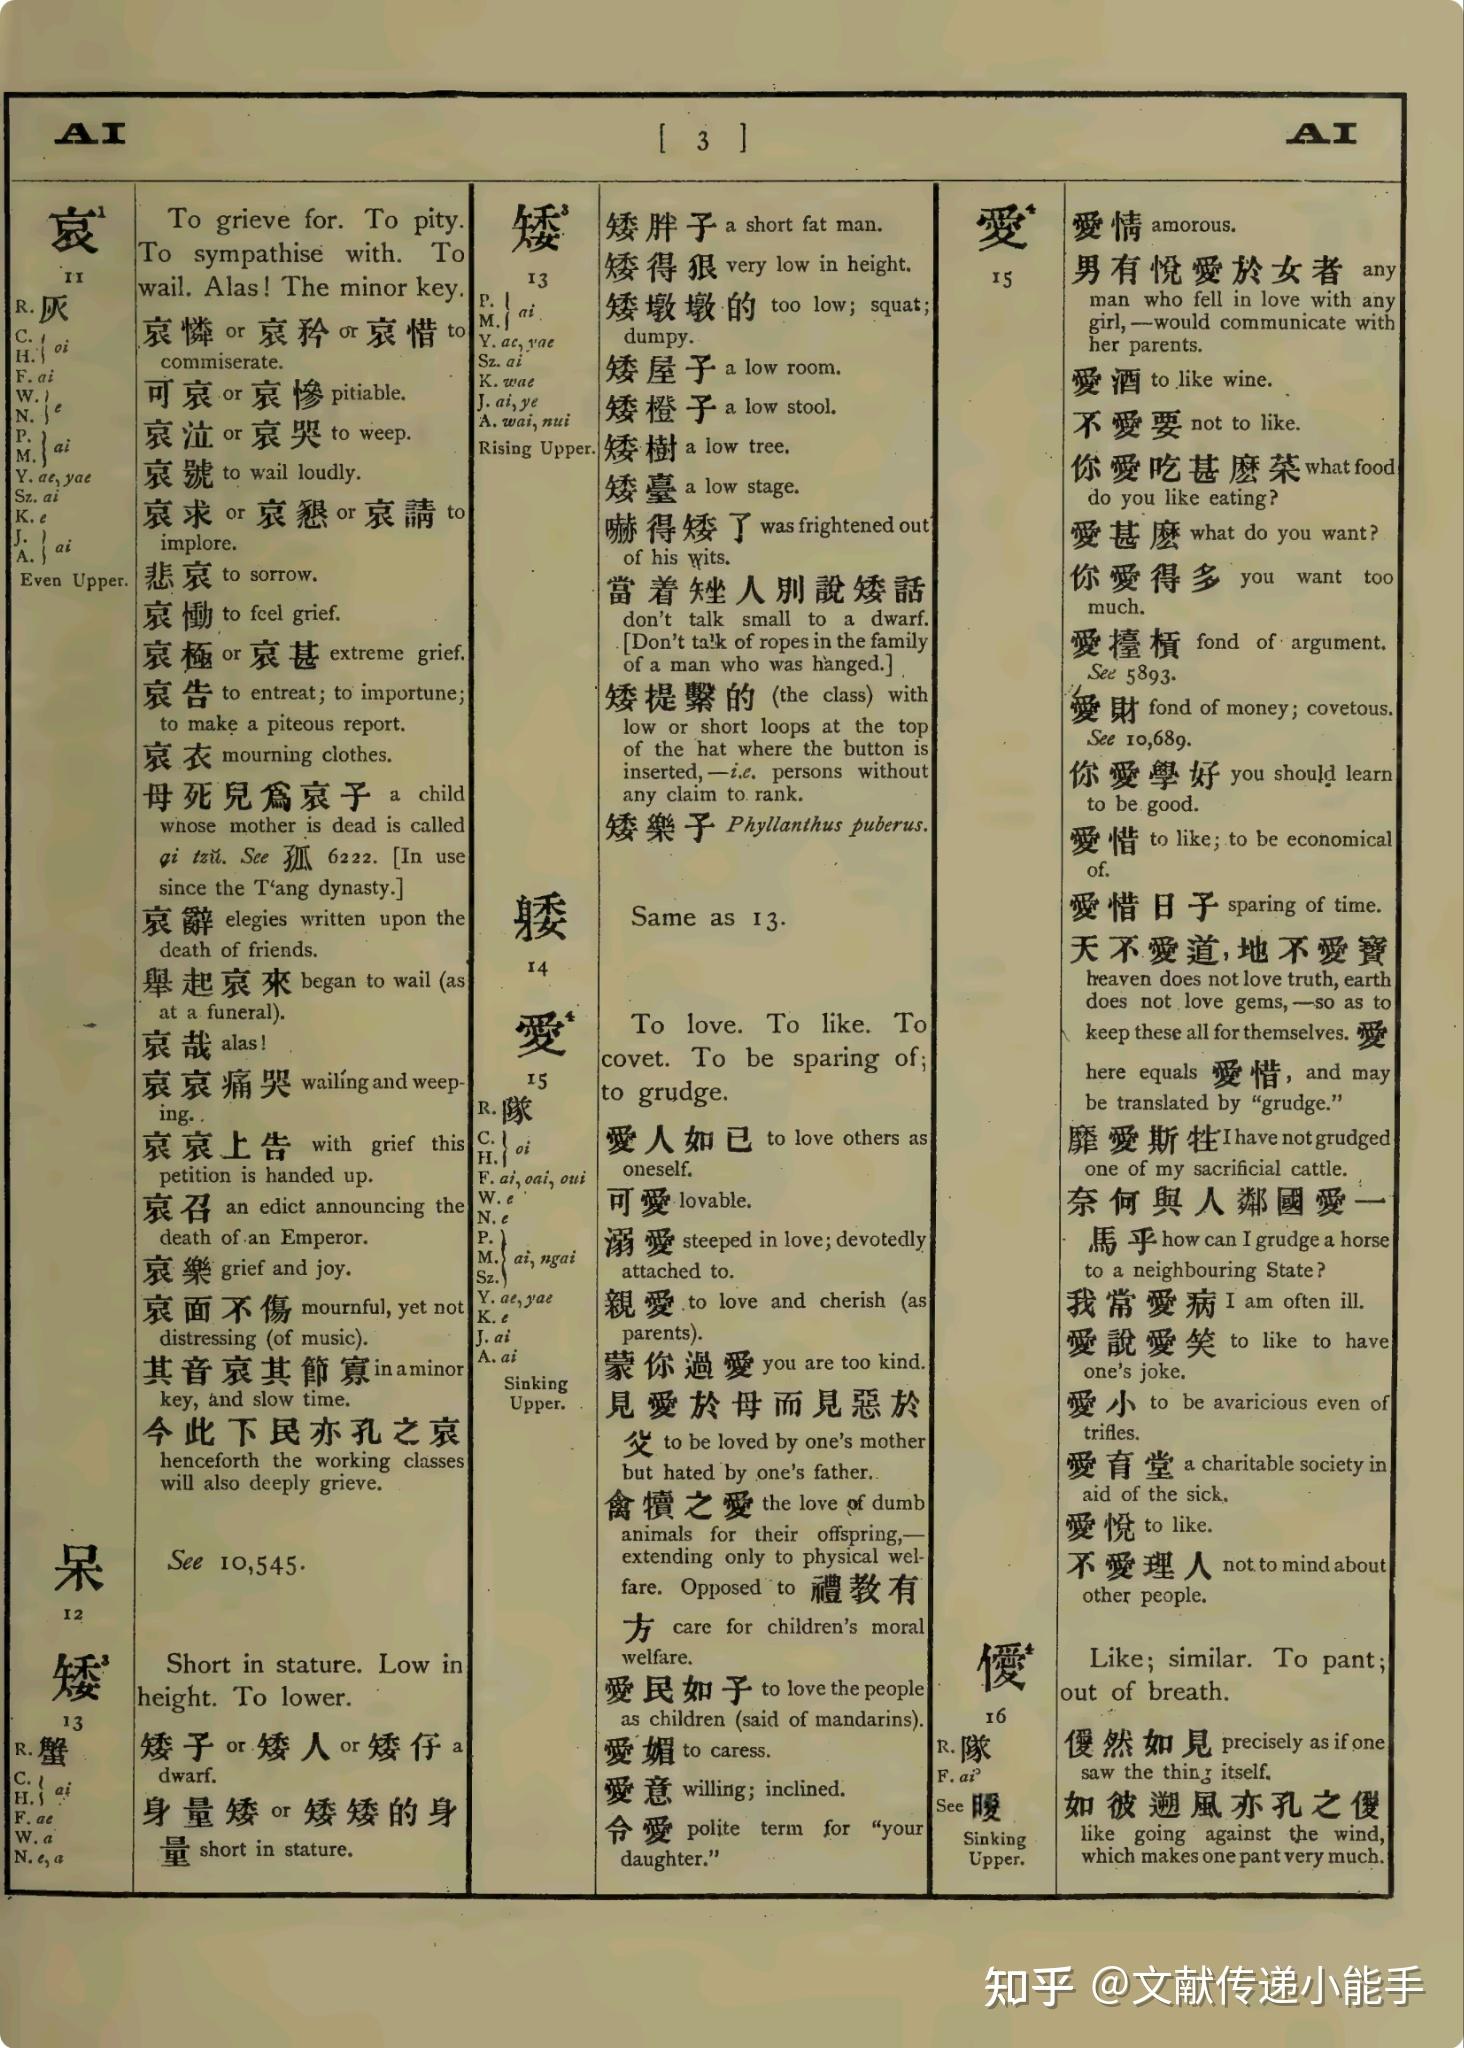 AI
[ 3 ]
AI
哀¹
11
R. 灰
C.
H. } oi
F. ai
W.
N. } e
P.
M. } ai
Y. ae, yae
Sz. ai
K. e
J.
A. } ai
Even Upper.
To grieve for. To pity.
To sympathise with. To
wail. Alas! The minor key.
哀憐 or 哀矜 or 哀惜 to
commiserate.
可哀 or 哀慘 pitiable.
哀泣 or 哀哭 to weep.
哀號 to wail loudly.
哀求 or 哀懇 or 哀請 to
implore.
悲哀 to sorrow.
哀慟 to feel grief.
哀極 or 哀甚 extreme grief.
哀告 to entreat; to importune;
to make a piteous report.
哀衣 mourning clothes.
母死兒爲哀子 a child
whose mother is dead is called
ai tzŭ. See 孤 6222. [In use
since the T‘ang dynasty.]
哀辭 elegies written upon the
death of friends.
舉起哀來 began to wail (as
at a funeral).
哀哉 alas!
哀哀痛哭 wailing and weep-
ing.
哀哀上告 with grief this
petition is handed up.
哀召 an edict announcing the
death of an Emperor.
哀樂 grief and joy.
哀而不傷 mournful, yet not
distressing (of music).
其音哀其節寡 in a minor
key, and slow time.
今此下民亦孔之哀
henceforth the working classes
will also deeply grieve.
呆
12
See 10,545.
矮³
13
R. 蟹
C.
H. } ai
F. ae
W. a
N. e, a
Short in stature. Low in
height. To lower.
矮子 or 矮人 or 矮仔 a
dwarf.
身量矮 or 矮矮的身
量 short in stature.
矮³
13
P.
M. } ai
Y. ae, yae
Sz. ai
K. wae
J. ai, ye
A. wai, nui
Rising Upper.
矮胖子 a short fat man.
矮得狠 very low in height.
矮墩墩的 too low; squat;
dumpy.
矮屋子 a low room.
矮橙子 a low stool.
矮樹 a low tree.
矮臺 a low stage.
嚇得矮了 was frightened out
of his wits.
當着矬人別說矮話
don't talk small to a dwarf.
[Don't talk of ropes in the family
of a man who was hanged.]
矮提繫的 (the class) with
low or short loops at the top
of the hat where the button is
inserted,—i.e. persons without
any claim to rank.
矮樂子 Phyllanthus puberus.
躷
14
Same as 13.
愛⁴
15
R. 隊
C.
H. } oi
F. ai, oai, oui
W. e
N. e
P.
M.
Sz. } ai, ngai
Y. ae, yae
K. e
J. ai
A. ai
Sinking
Upper.
To love. To like. To
covet. To be sparing of;
to grudge.
愛人如已 to love others as
oneself.
可愛 lovable.
溺愛 steeped in love; devotedly
attached to.
親愛 to love and cherish (as
parents).
蒙你過愛 you are too kind.
見愛於母而見惡於
父 to be loved by one's mother
but hated by one's father.
禽犢之愛 the love of dumb
animals for their offspring,—
extending only to physical wel-
fare. Opposed to 禮教有
方 care for children's moral
welfare.
愛民如子 to love the people
as children (said of mandarins).
愛媚 to caress.
愛意 willing; inclined.
令愛 polite term for “your
daughter.”
愛⁴
15
愛情 amorous.
男有悅愛於女者 any
man who fell in love with any
girl,—would communicate with
her parents.
愛酒 to like wine.
不愛要 not to like.
你愛吃甚麽菜 what food
do you like eating?
愛甚麽 what do you want?
你愛得多 you want too
much.
愛擡槓 fond of argument.
See 5893.
愛財 fond of money; covetous.
See 10,689.
你愛學好 you should learn
to be good.
愛惜 to like; to be economical
of.
愛惜日子 sparing of time.
天不愛道，地不愛寶
heaven does not love truth, earth
does not love gems,—so as to
keep these all for themselves. 愛
here equals 愛惜, and may
be translated by “grudge.”
靡愛斯牲 I have not grudged
one of my sacrificial cattle.
奈何與人鄰國愛一
馬乎 how can I grudge a horse
to a neighbouring State?
我常愛病 I am often ill.
愛說愛笑 to like to have
one's joke.
愛小 to be avaricious even of
trifles.
愛育堂 a charitable society in
aid of the sick.
愛悅 to like.
不愛理人 not to mind about
other people.
僾⁴
16
R. 隊
F. ai
See 曖
Sinking
Upper.
Like; similar. To pant;
out of breath.
僾然如見 precisely as if one
saw the thing itself.
如彼遡風亦孔之僾
like going against the wind,
which makes one pant very much.
知乎 @文献传递小能手